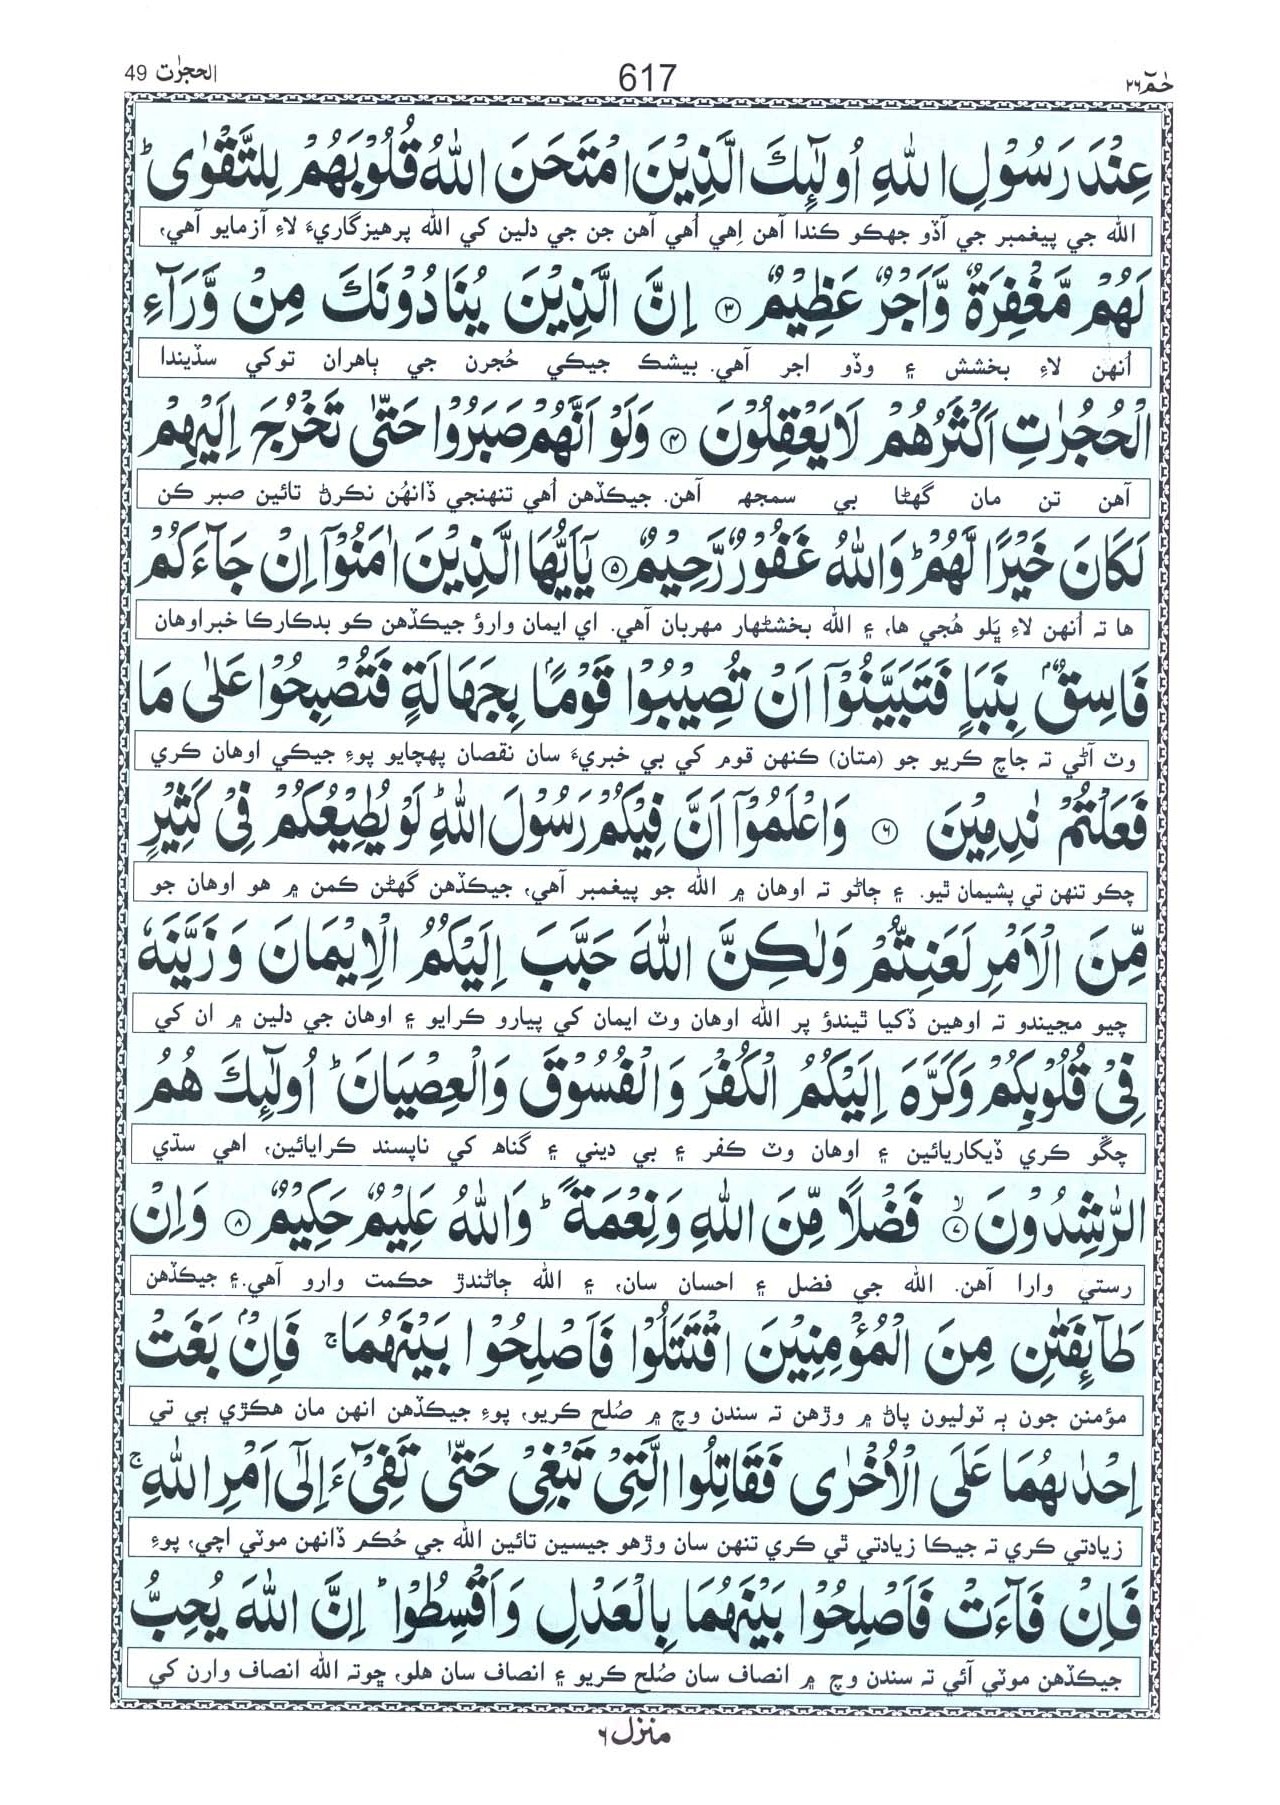 حٰمٓ ٢٦
617
الحجرٰت 49
عِنْدَ رَسُوْلِ اللّٰهِ اُولٰٓئِكَ الَّذِيْنَ امْتَحَنَ اللّٰهُ قُلُوْبَهُمْ لِلتَّقْوٰىؕ
الله جي پيغمبر جي آڏو جهڪو ڪندا آهن اِهي اُهي آهن جن جي دلين کي الله پرهيزگاريءَ لاءِ آزمايو آهي،
لَهُمْ مَّغْفِرَةٌ وَّاَجْرٌ عَظِيْمٌ ۝۳ اِنَّ الَّذِيْنَ يُنَادُوْنَكَ مِنْ وَّرَآءِ
اُنهن لاءِ بخشش ۽ وڏو اجر آهي. بيشڪ جيڪي حُجرن جي ٻاهران توکي سڏيندا
الْحُجُرٰتِ اَكْثَرُهُمْ لَا يَعْقِلُوْنَ ۝۴ وَلَوْ اَنَّهُمْ صَبَرُوْا حَتّٰى تَخْرُجَ اِلَيْهِمْ
آهن تن مان گهڻا بي سمجهہ آهن. جيڪڏهن اُهي تنهنجي ڏانهُن نڪرڻ تائين صبر ڪن
لَكَانَ خَيْرًا لَّهُمْؕ وَاللّٰهُ غَفُوْرٌ رَّحِيْمٌ ۝۵ يٰۤاَيُّهَا الَّذِيْنَ اٰمَنُوْۤا اِنْ جَآءَكُمْ
ها تہ اُنهن لاءِ ڀَلو هُجي ها، ۽ الله بخشڻهار مهربان آهي. اي ايمان وارؤ جيڪڏهن ڪو بدڪارڪا خبراوهان
فَاسِقٌۢ بِنَبَاٍ فَتَبَيَّنُوْۤا اَنْ تُصِيْبُوْا قَوْمًۢا بِجَهَالَةٍ فَتُصْبِحُوْا عَلٰى مَا
وٽ آڻي تہ جاچ ڪريو جو (متان) ڪنهن قوم کي بي خبريءَ سان نقصان پهچايو پوءِ جيڪي اوهان ڪري
فَعَلْتُمْ نٰدِمِيْنَ ۝۶ وَاعْلَمُوْۤا اَنَّ فِيْكُمْ رَسُوْلَ اللّٰهِؕ لَوْ يُطِيْعُكُمْ فِيْ كَثِيْرٍ
چڪو تنهن تي پشيمان ٿيو. ۽ ڄاڻو تہ اوهان ۾ الله جو پيغمبر آهي، جيڪڏهن گهڻن ڪمن ۾ هو اوهان جو
مِّنَ الْاَمْرِ لَعَنِتُّمْ وَلٰكِنَّ اللّٰهَ حَبَّبَ اِلَيْكُمُ الْاِيْمَانَ وَزَيَّنَهٗ
چيو مڃيندو تہ اوهين ڏکيا ٿيندؤ پر الله اوهان وٽ ايمان کي پيارو ڪرايو ۽ اوهان جي دلين ۾ ان کي
فِيْ قُلُوْبِكُمْ وَكَرَّهَ اِلَيْكُمُ الْكُفْرَ وَالْفُسُوْقَ وَالْعِصْيَانَؕ اُولٰٓئِكَ هُمُ
چڱو ڪري ڏيکاريائين ۽ اوهان وٽ ڪفر ۽ بي ديني ۽ گناھ کي ناپسند ڪرايائين، اهي سڌي
الرّٰشِدُوْنَ ۝۷ۙ فَضْلًا مِّنَ اللّٰهِ وَنِعْمَةًؕ وَاللّٰهُ عَلِيْمٌ حَكِيْمٌ ۝۸ وَاِنْ
رستي وارا آهن. الله جي فضل ۽ احسان سان، ۽ الله ڄاڻندڙ حڪمت وارو آهي. ۽ جيڪڏهن
طَآئِفَتٰنِ مِنَ الْمُؤْمِنِيْنَ اقْتَتَلُوْا فَاَصْلِحُوْا بَيْنَهُمَاۚ فَاِنْۢ بَغَتْ
مؤمنن جون ٻہ ٽوليون پاڻ ۾ وڙهن تہ سندن وچ ۾ صُلح ڪريو، پوءِ جيڪڏهن انهن مان هڪڙي ٻي تي
اِحْدٰىهُمَا عَلَى الْاُخْرٰى فَقَاتِلُوا الَّتِيْ تَبْغِيْ حَتّٰى تَفِيْٓءَ اِلٰٓى اَمْرِ اللّٰهِۚ
زيادتي ڪري تہ جيڪا زيادتي ٿي ڪري تنهن سان وڙهو جيسين تائين الله جي حُڪم ڏانهن موٽي اچي، پوءِ
فَاِنْ فَآءَتْ فَاَصْلِحُوْا بَيْنَهُمَا بِالْعَدْلِ وَاَقْسِطُوْاؕ اِنَّ اللّٰهَ يُحِبُّ
جيڪڏهن موٽي آئي تہ سندن وچ ۾ انصاف سان صُلح ڪريو ۽ انصاف سان هلو، ڇوتہ الله انصاف وارن کي
منزل ٦